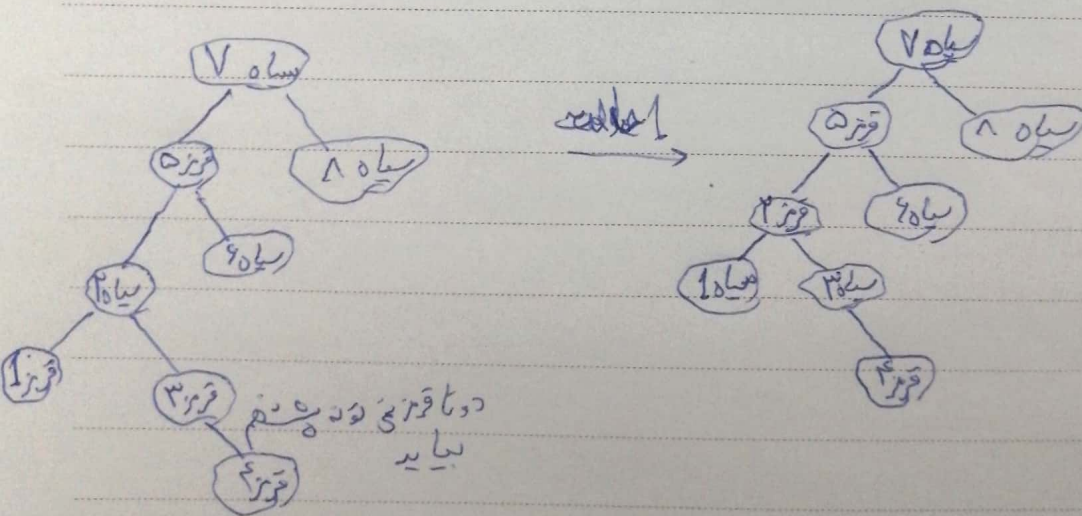 سیاه ۷
قرمز ۵
سیاه ۸
سیاه ۲
سیاه ۶
قرمز 1
قرمز ۳
قرمز ۴
دوتا قرمز نمی تونه پشت هم
بیاید
سیاه ۷
قرمز ۵
سیاه ۸
قرمز ۲
سیاه ۶
سیاه 1
سیاه ۳
قرمز ۴